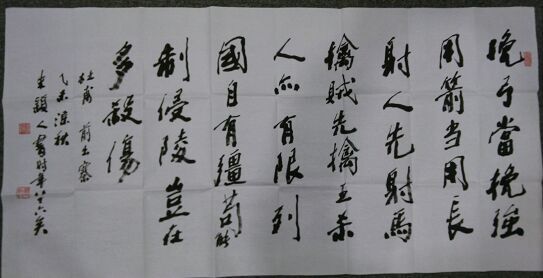 挽弓當挽強
用箭当用長
射人先射馬
擒賊先擒王杀
人亦有限列
國自有疆苟能
制侵陵豈在
多殺傷
杜甫 前出塞
乙未深秋
人書時年八十六矣